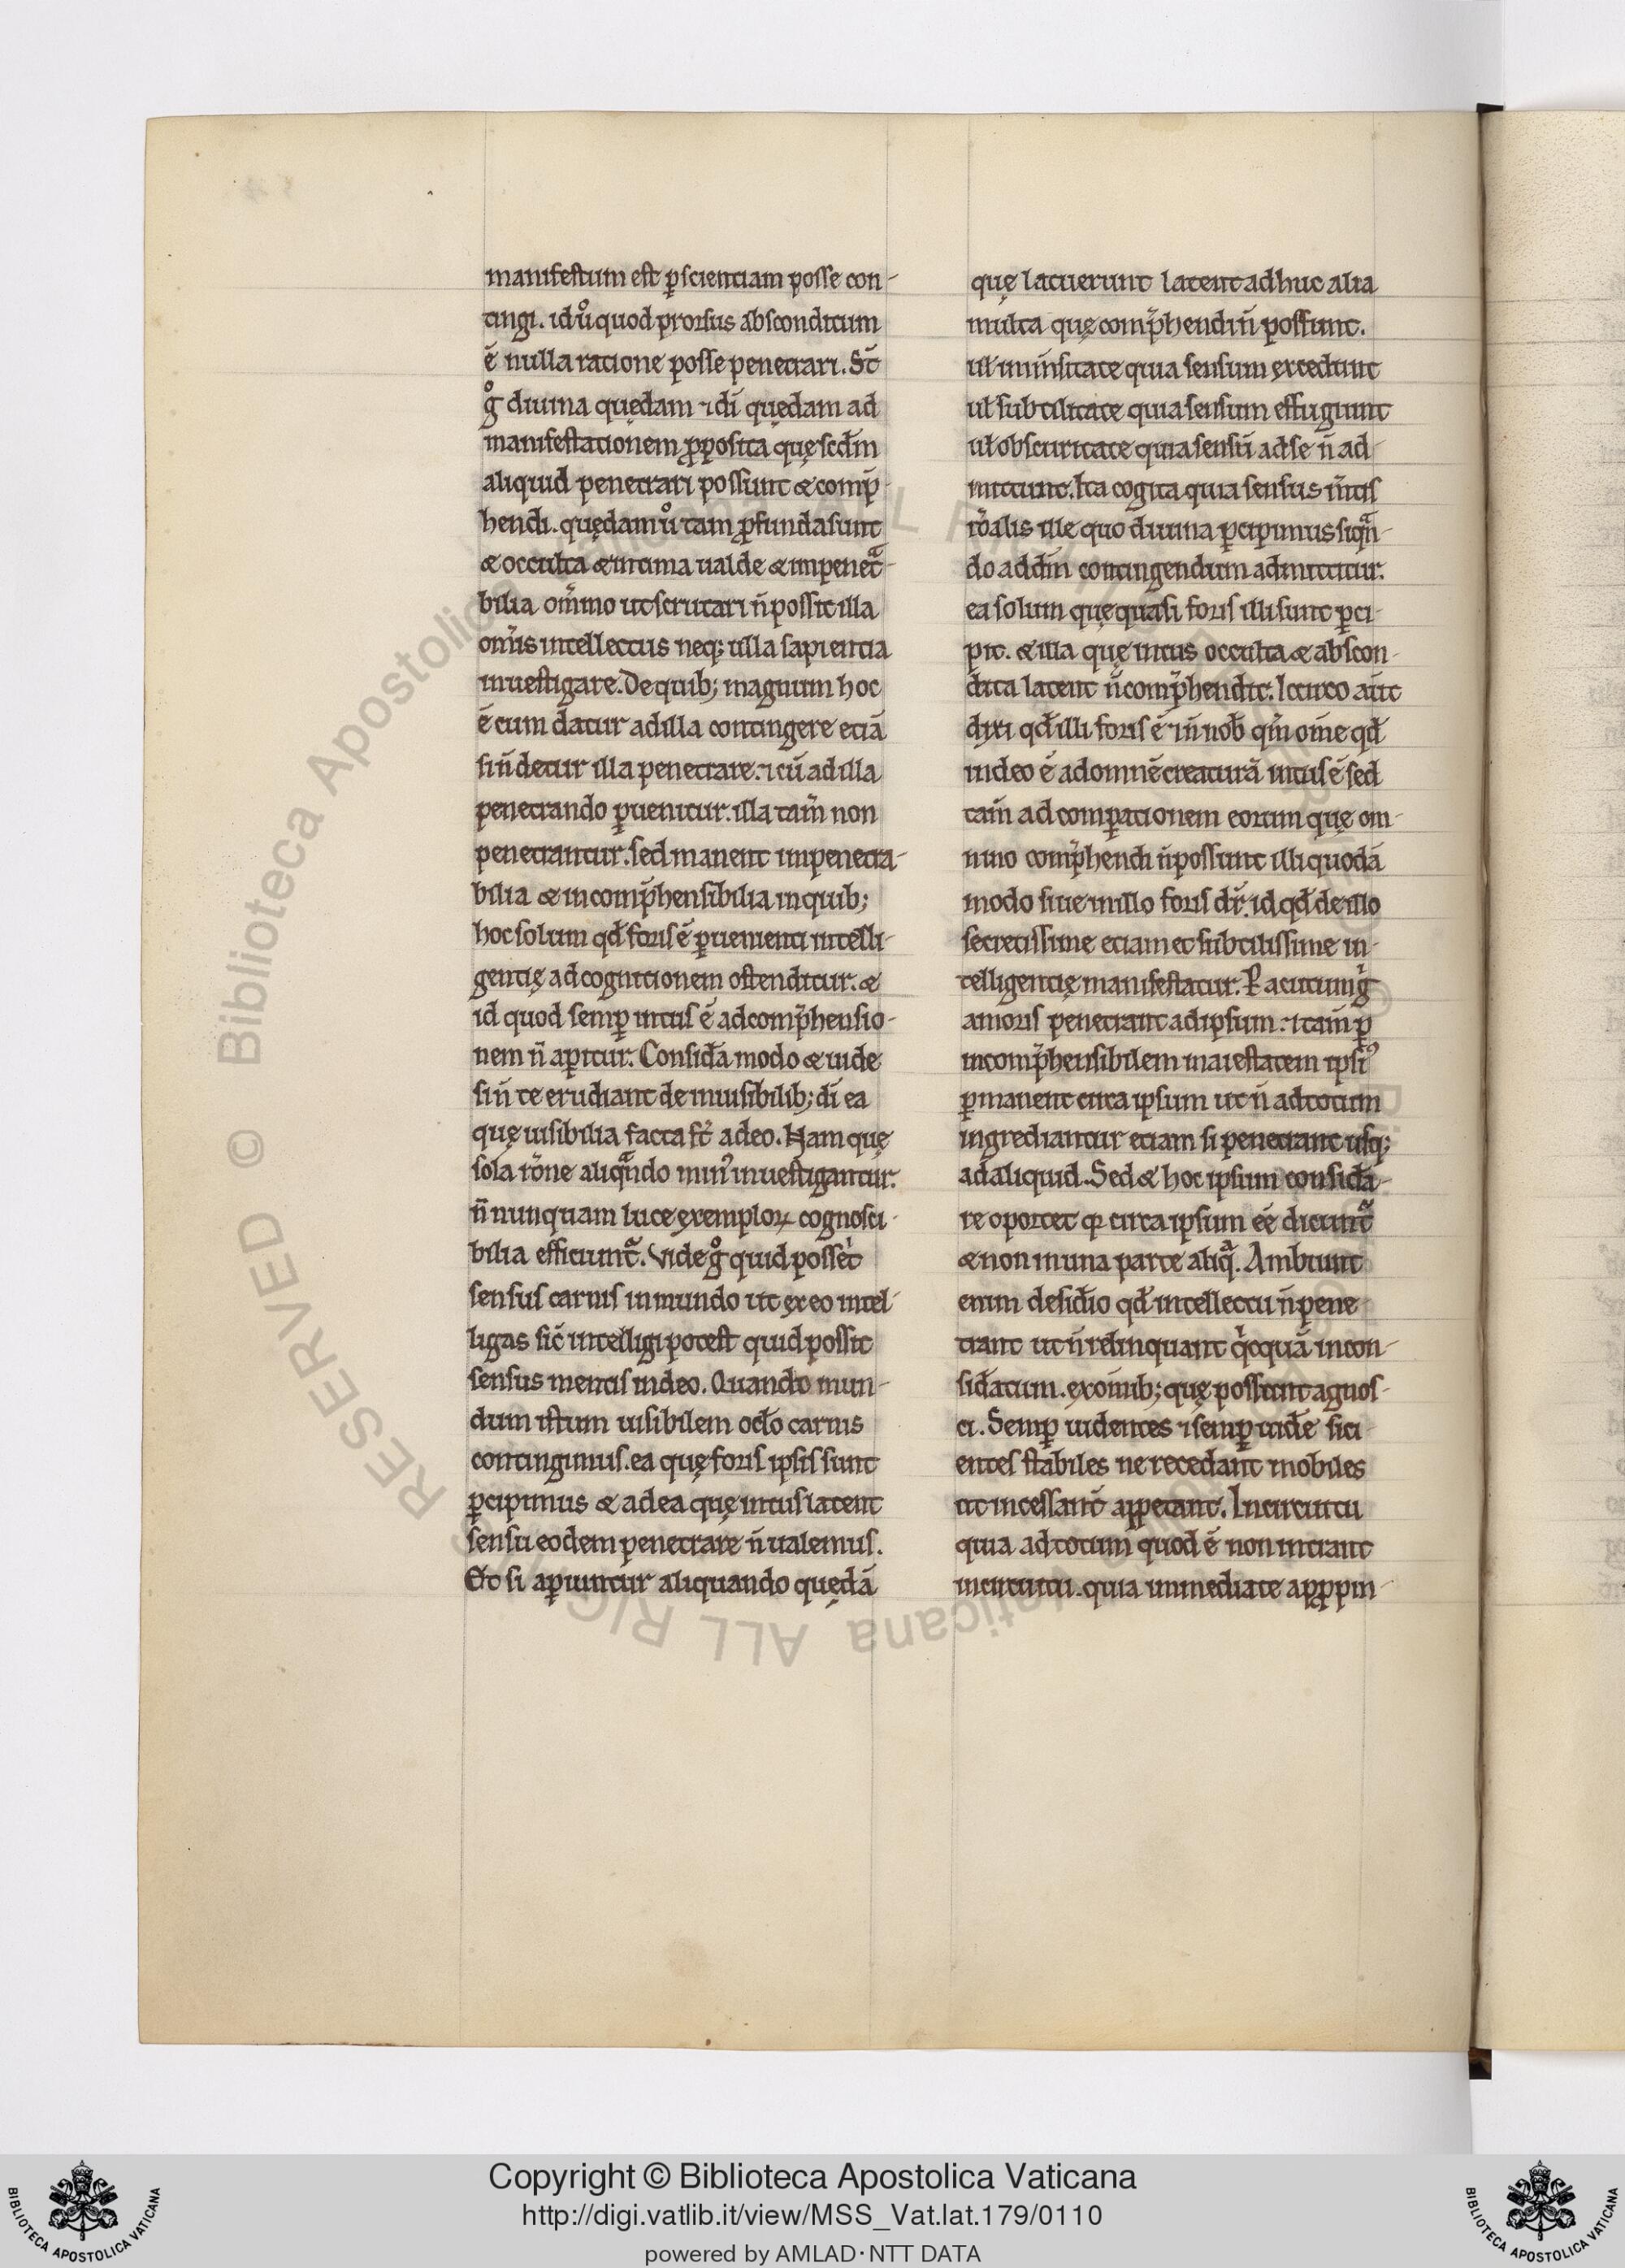 manifestum est ꝑ scientiam posse con-
tingi. id uͦ quod prorsus absconditum
ē nulla ratione posse penetrari. St̄
gͦ diuina quędam ⁊ dī quędam ad
manifestationem ꝓposita quę scd̄m
aliquid penetrari possunt & comp̄-
hendi. quędam uͦ tam ꝓfunda sunt
& occulta & intima ualde & impenetᵃ-
bilia om̄ino ut scrutari n̄ possit illa
om̄is intellectus neq; ulla sapientia
inuestigare. De quib; magnum hoc
ē cum datur ad illa contingere etiā
si n̄ detur illa penetrare. ⁊ cū ad illa
penetrando ꝑuenitur. illa tam̄ non
penetrantur. sed manent impenetra-
bilia & incomp̄hensibilia in quib;
hoc solum qd̄ foris ē ꝑuenienti intelli-
gentię ad cognitionem ostenditur. &
id quod semꝑ intus ē ad comp̄hensio-
nem n̄ aꝑitur. Consid̄a modo & uide
si n̄ te erudiant de inuisibilib; dī ea
quę uisibilia facta st̄ a deo. Nam quę
sola rōne aliqᵃndo min᾽ inuestigantur.
n̄ nunquam luce exemploꝝ cognosci-
bilia efficiunt᷑. Vide gͦ quid possēt
sensus carnis in mundo ut ex eo intel-
ligas sic̄ intelligi potest quid possit
sensus mentis in deo. Quando mun-
dum istum uisibilem oclo carnis
contingimus. ea quę foris ipsis sunt
ꝑcipimus & ad ea quę intus latent
sensu eodem penetrare n̄ ualemus.
Et si aꝑiuntur aliquando quędā
quę latuerunt latent adhuc alia
multa quę comp̄hendi n̄ possunt.
ul̄ inm̄sitate quia sensum excedunt
ul̄ subtilitate quia sensum effugiunt
ul̄ obscuritate quia sensū ad se n̄ ad-
mittunt. Ita cogita quia sensus m̄tis
rōalis ille quo diuina ꝑcipimus si qᵃn-
do ad dm̄ contingendum admittitur.
ea solum quę quasi foris illi sunt ꝑci-
pit. & illa quę intus occulta & abscon-
dita latent n̄ comp̄hendit. Iccirco aut̄
dixi qd̄ illi foris ē ⁊ n̄ nob̄ qm̄ om̄e qd̄
in deo ē ad omnē creaturā intus ē sed
tam̄ ad comꝑationem eorum quę om-
nino comp̄hendi n̄ possunt illi quodā
modo siue in illo foris dr̄. id qd̄ de illo
secretissime etiam et subtilissime in-
telligentię manifestatur. P acutum gⁱ
amoris penetrant ad ipsum. ⁊ tam̄ ꝑ
incomp̄hensibilem maiestatem ipsi᾽
ꝑmanent circa ipsum ut n̄ ad totum
ingrediantur etiam si penetrant usq;
ad aliquid. Sed & hoc ipsum consid̄a-
re oportet ꝙ circa ipsum ēē dicunt᷑
& non in una parte aliqᵃ. Ambiunt
enim desid̄io qd̄ intellectu n̄ pene-
trant ut n̄ relinquant qⁱcquā incon-
sid̄atum. ex om̄ib; quę possunt agnos-
ci. Semꝑ uidentes ⁊ semꝑ uid̄e siti-
entes stabiles ne recedant mobiles
ut incessant̄ appetant. In circuitu
quia ad totum quod ē non intrant
in circuitu. quia inmediate apꝓpin-
Copyright © Biblioteca Apostolica Vaticana
http://digi.vatlib.it/view/MSS_Vat.lat.179/0110
powered by AMLAD·NTT DATA